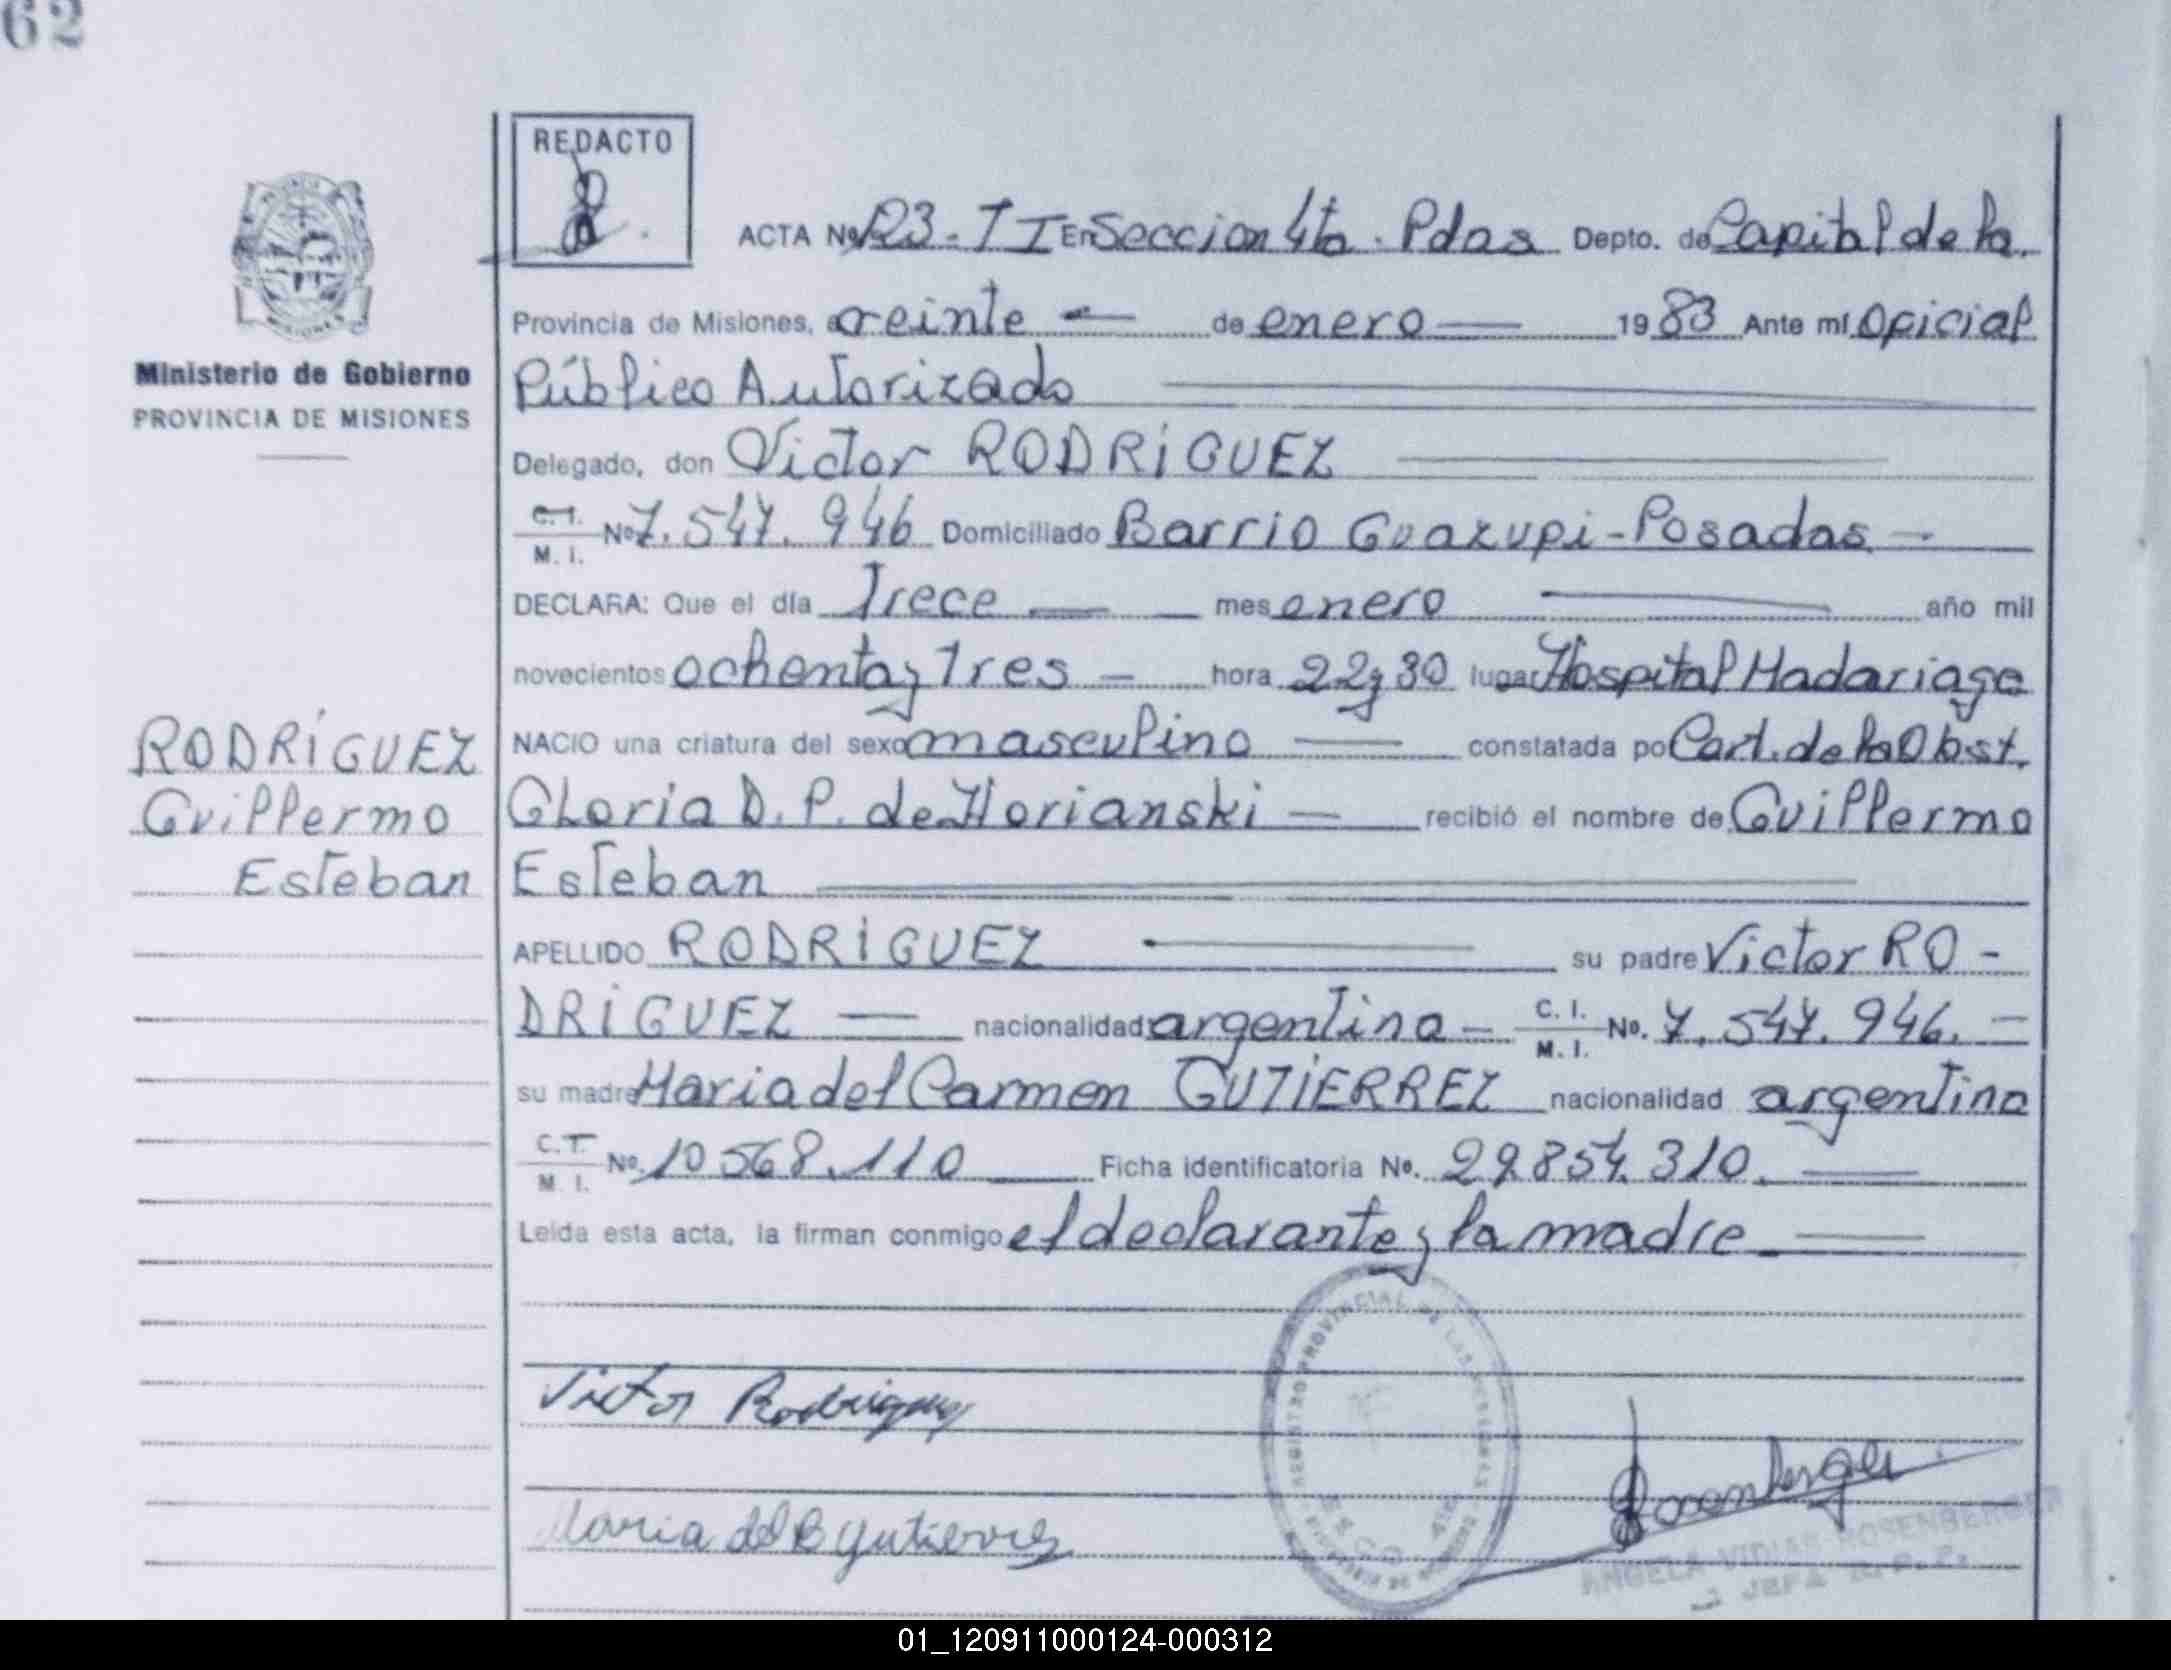 62
REDACTO
ACTA Nº 123-TI En Seccion 4ta. Pdas Depto. de Capital de la
Provincia de Misiones, a veinte — de enero — 1983 Ante mí Oficial
Público Autorizado
Ministerio de Gobierno
PROVINCIA DE MISIONES
Delegado, don Victor RODRÍGUEZ
C. I. M. I. Nº 7.547.946 Domiciliado Barrio Guazupi-Posadas —
DECLARA: Que el día Trece — mes enero — año mil
novecientos ochenta y Tres — hora 22 y 30 lugar Hospital Madariaga
NACIO una criatura del sexo masculino — constatada po Cert. de la Obst.
Gloria D. P. de Horianski — recibió el nombre de Guillermo
Esteban
RODRÍGUEZ
Guillermo
Esteban
APELLIDO RODRÍGUEZ — su padre Victor RO-
DRÍGUEZ — nacionalidad argentina — C. I. M. I. No. 7.547.946. —
su madre Maria del Carmen GUTIERREZ nacionalidad argentina
C. I. M. I. No. 10568.110 Ficha identificatoria No. 29.854.310. —
Leída esta acta, la firman conmigo el declarante y la madre —
REGISTRO PROVINCIAL DE LAS PERSONAS
Victor Rodriguez
Maria del C Gutierrez
Rosenberger
ANGELA VIDIAS ROSENBERGER
JEFA R. P. P.
01_120911000124-000312